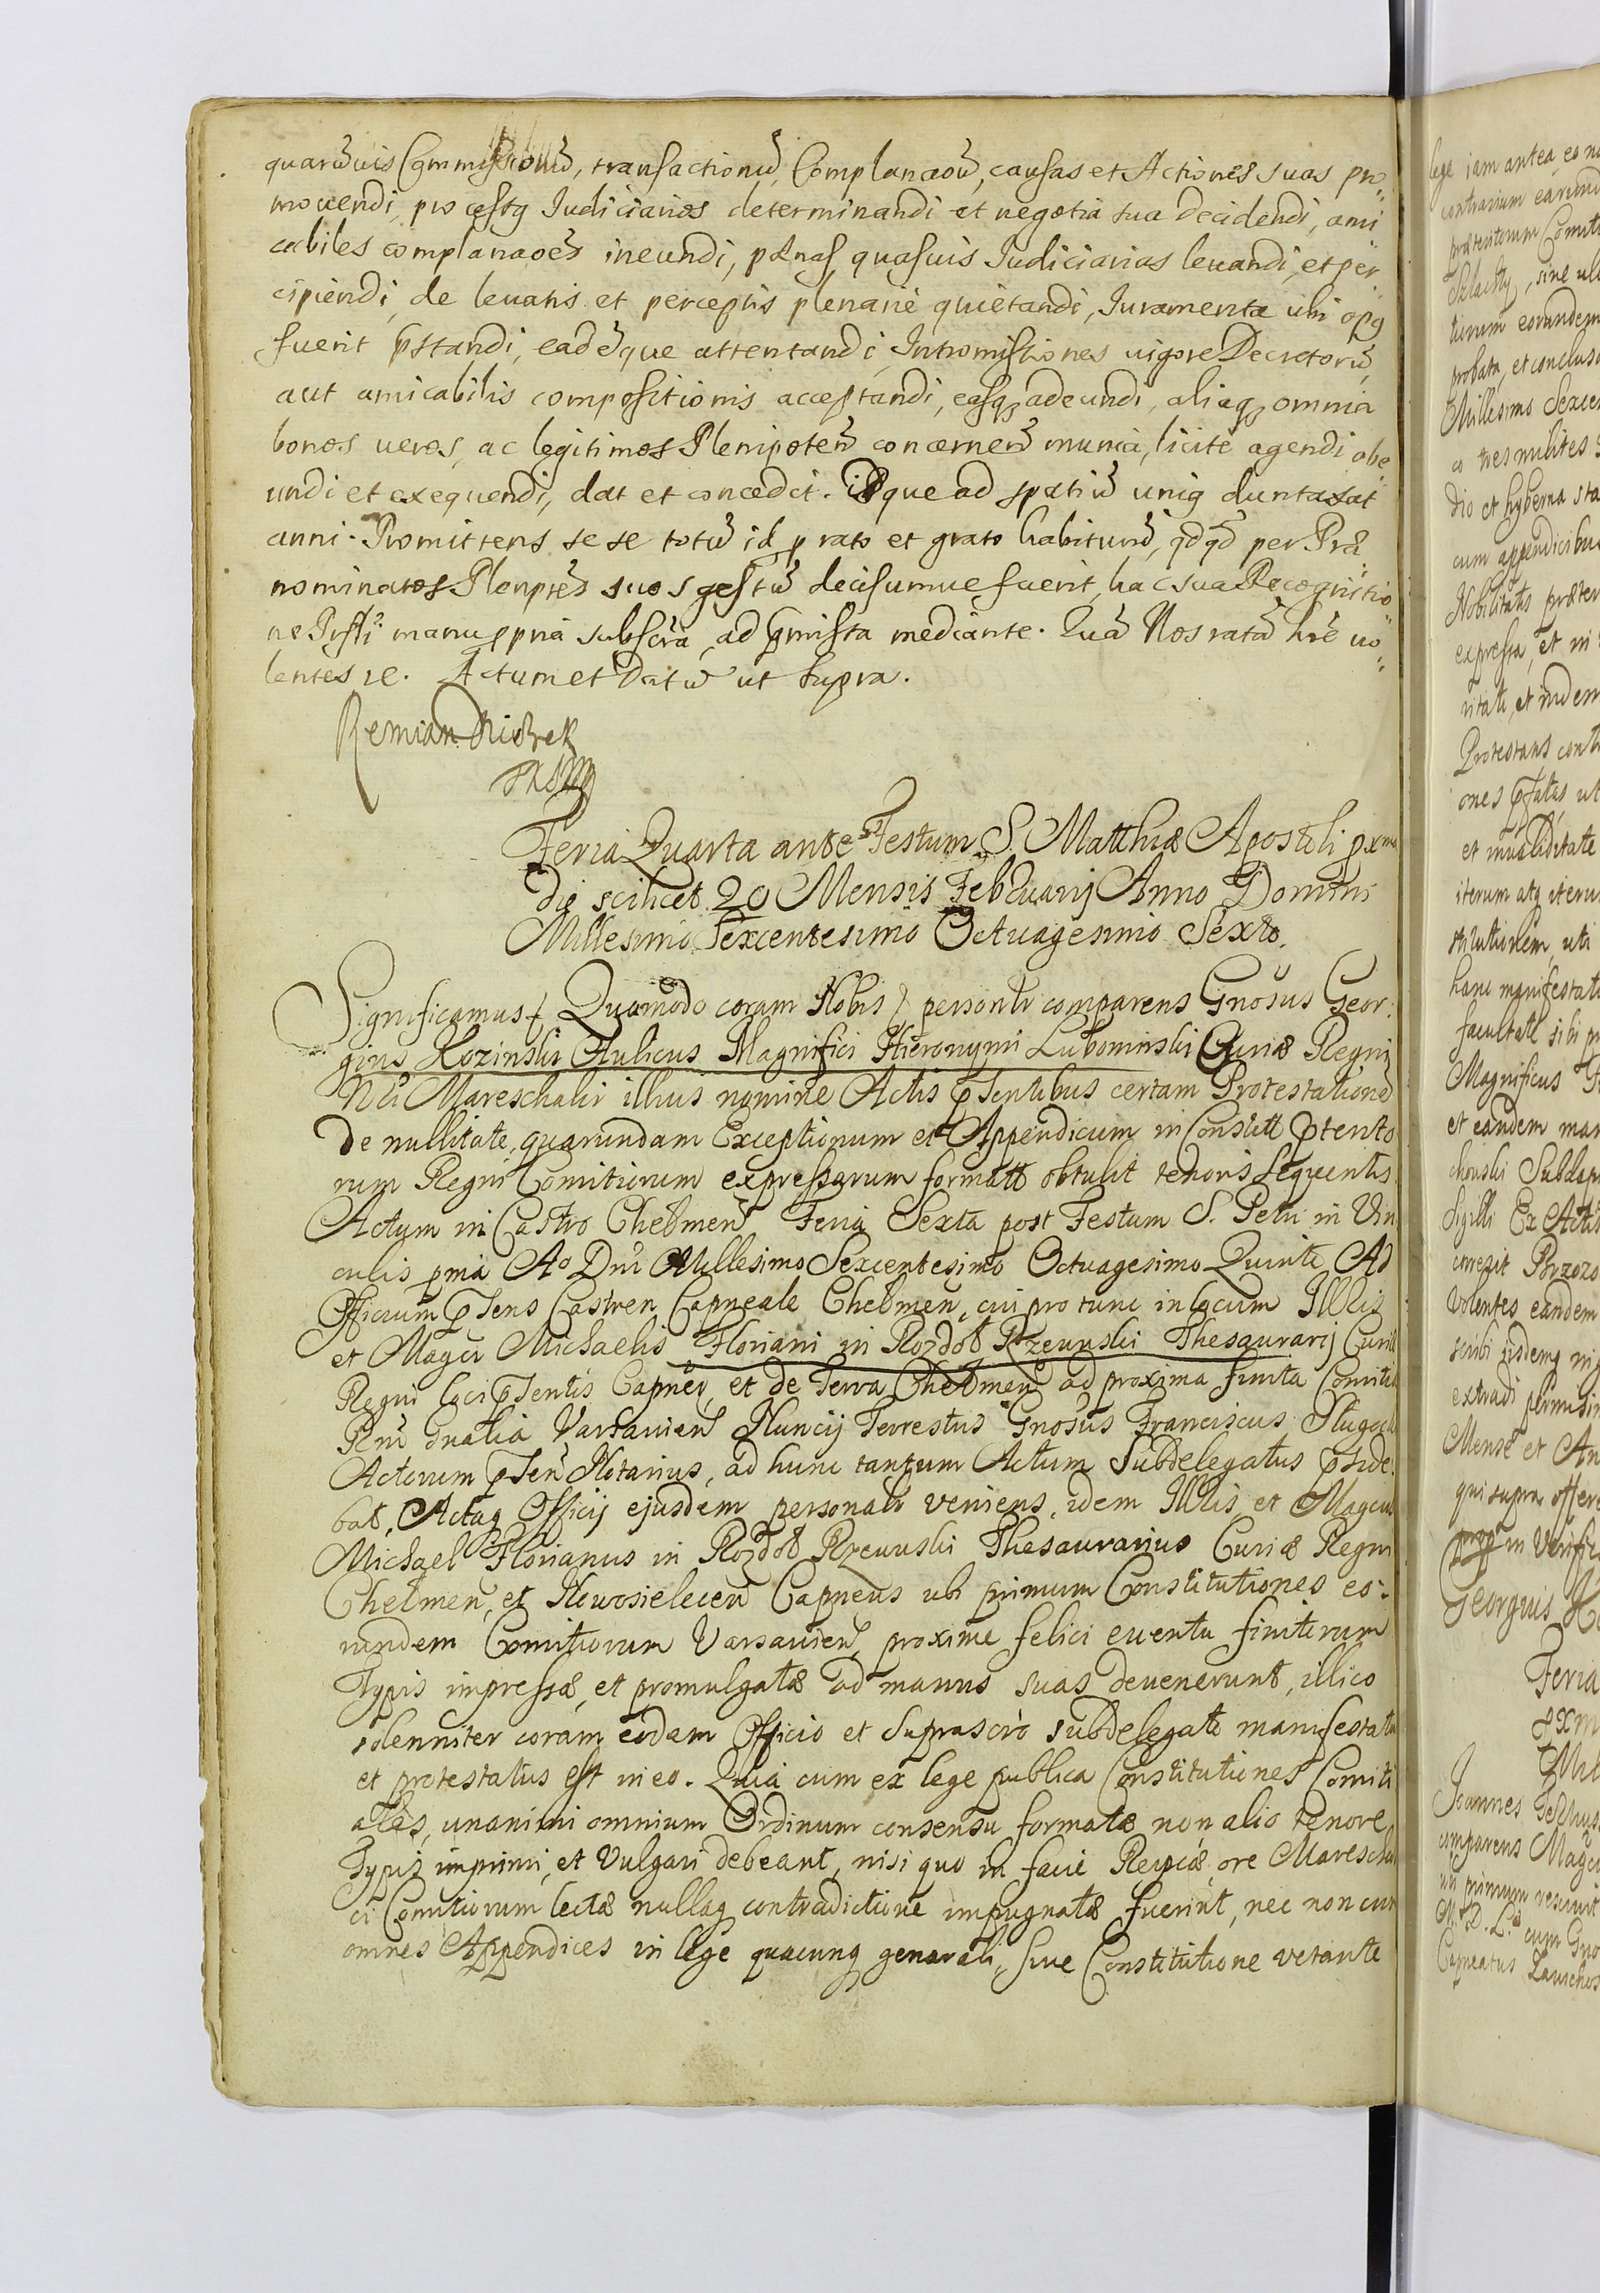 quarūvis Commissionū, transactionū, Complanaoū, causas et Actiones suas pro
movendi, processq Iudiciarios determinandi et negotia sua decidendi, ami
cabiles complanaoēs ineundi, pænas quasuis Iudiciarias levandi, et per
cipiendi, de levatis et perceptis plenarie quietandi, Iuramenta ubi opq
fuerit pstandi, eadēque attentandi, Intromissiones vigore Decretorū
aut amicabilis compositionis acceptandi, easq adeundi, aliaq omnia
bonos veros, ac legitimos Plenipoteñ concerneñ munia, licite agendi obe
undi et exequendi, dat et concedit. idque ad spatiū uniq duntaxat
anni. Promittens se se totū id p rato et grato habiturū, qdqd per Præ
nominatos Plenptes suos gestū decisumve fuerit, hac sua Recognitio
ne manu ppria subscra, ad pmissa mediante. Quā Nos ratā hrē vo
lentes re. Actum et Datū ut supra.
Feria Quarta ante Festum S. Matthiæ Apostoli pxma
die scilicet 20 Mensis Februarij Anno Domini
Millesimo Sexcentesimo Octuagesimo Sexto.
Significamus Quomodo coram Nobis personlr comparens Gnosus Geor
gius Kozinski Aulicus Magnifici Hieronymi Lubomirski Curiæ Regni
Nri Mareschalci illius nomine Actis pſentibus certam Protestationē
de nullitate, quarundam Exceptionum et Appendicum in Constitt ptento
rum Regni Comitiorum expressarum formatt obtulit tenoris sequentis
Actum in Castro Chełmeñ Feria Sexta post Festum S. Petri in Vin
culis pma Ao Dni Millesimo Sexcentesimo Octuagesimo Quinto Ad
Officium pſens Castren Capneale Chełmeñ, cui pro tunc in locum Illris
et Magci Michaelis Floriani in Rozdoł Rzewuski Thesaurarij Curiæ
Regni loci pſentis Capnei, et de Terra Chełmeñ ad proxima finita Comitia
Rni Gnalia Varsavieñ Nuncij Terrestris Gnosus Franciscus
Actorum pſeñ Notarius, ad hunc tantum Actum Subdelegatus pside
bat, Actaq Officij ejusdem personalr veniens, idem Illris et Magcus
Michael Florianus in Rozdoł Rzewuski Thesaurarius Curiæ Regni
Chełmeñ, et Nowosieleceñ Capneus ubi primum Constitutiones eo:
rundem Comitiorum Varsavieñ, proxime felici eventu finitorum
Typis impressæ, et promulgatæ ad manus suas devenerunt, illico
solenniter coram eodam Officio et suprascro subdelegato manifestatu
et protestatus est in eo. Quia cum ex lege publica Constitutiones Comiti
ales, unanimi omnium Ordinum consensu formatæ non alio tenore
Typis imprimi, et Vulgari debeant, nisi quo in facie Reipcæ ore Marescha
ci Comitiorum lectæ nullaq contradictione impugnatæ fuerint, nec non cum
omnes Appendices in lege quacunq generali, sive Constitutione vetante
lege iam antea, eo
contrarium earund
prætentorum Comit
sine ull
eorundem
probata, et conclusa
Millesimo Sexce
co tres milites
dio et hyberna sta
cum appendicibus
Nobilitatis præter
expressa, et in
Protestans cont
ones ut
et invaliditate
iterum atq iteru
stitutionem, uti
hanc manifestati
facultate sibi
Magnificus
et eandem man
Sigilli Ex Actis
Volentes eandem
extradi permisim
Mense et An
qui supra offer
in Verific
Georgius
Feria
pxm
Joannes
comparens
uti primum rescivit
cum Gno
Capneatus